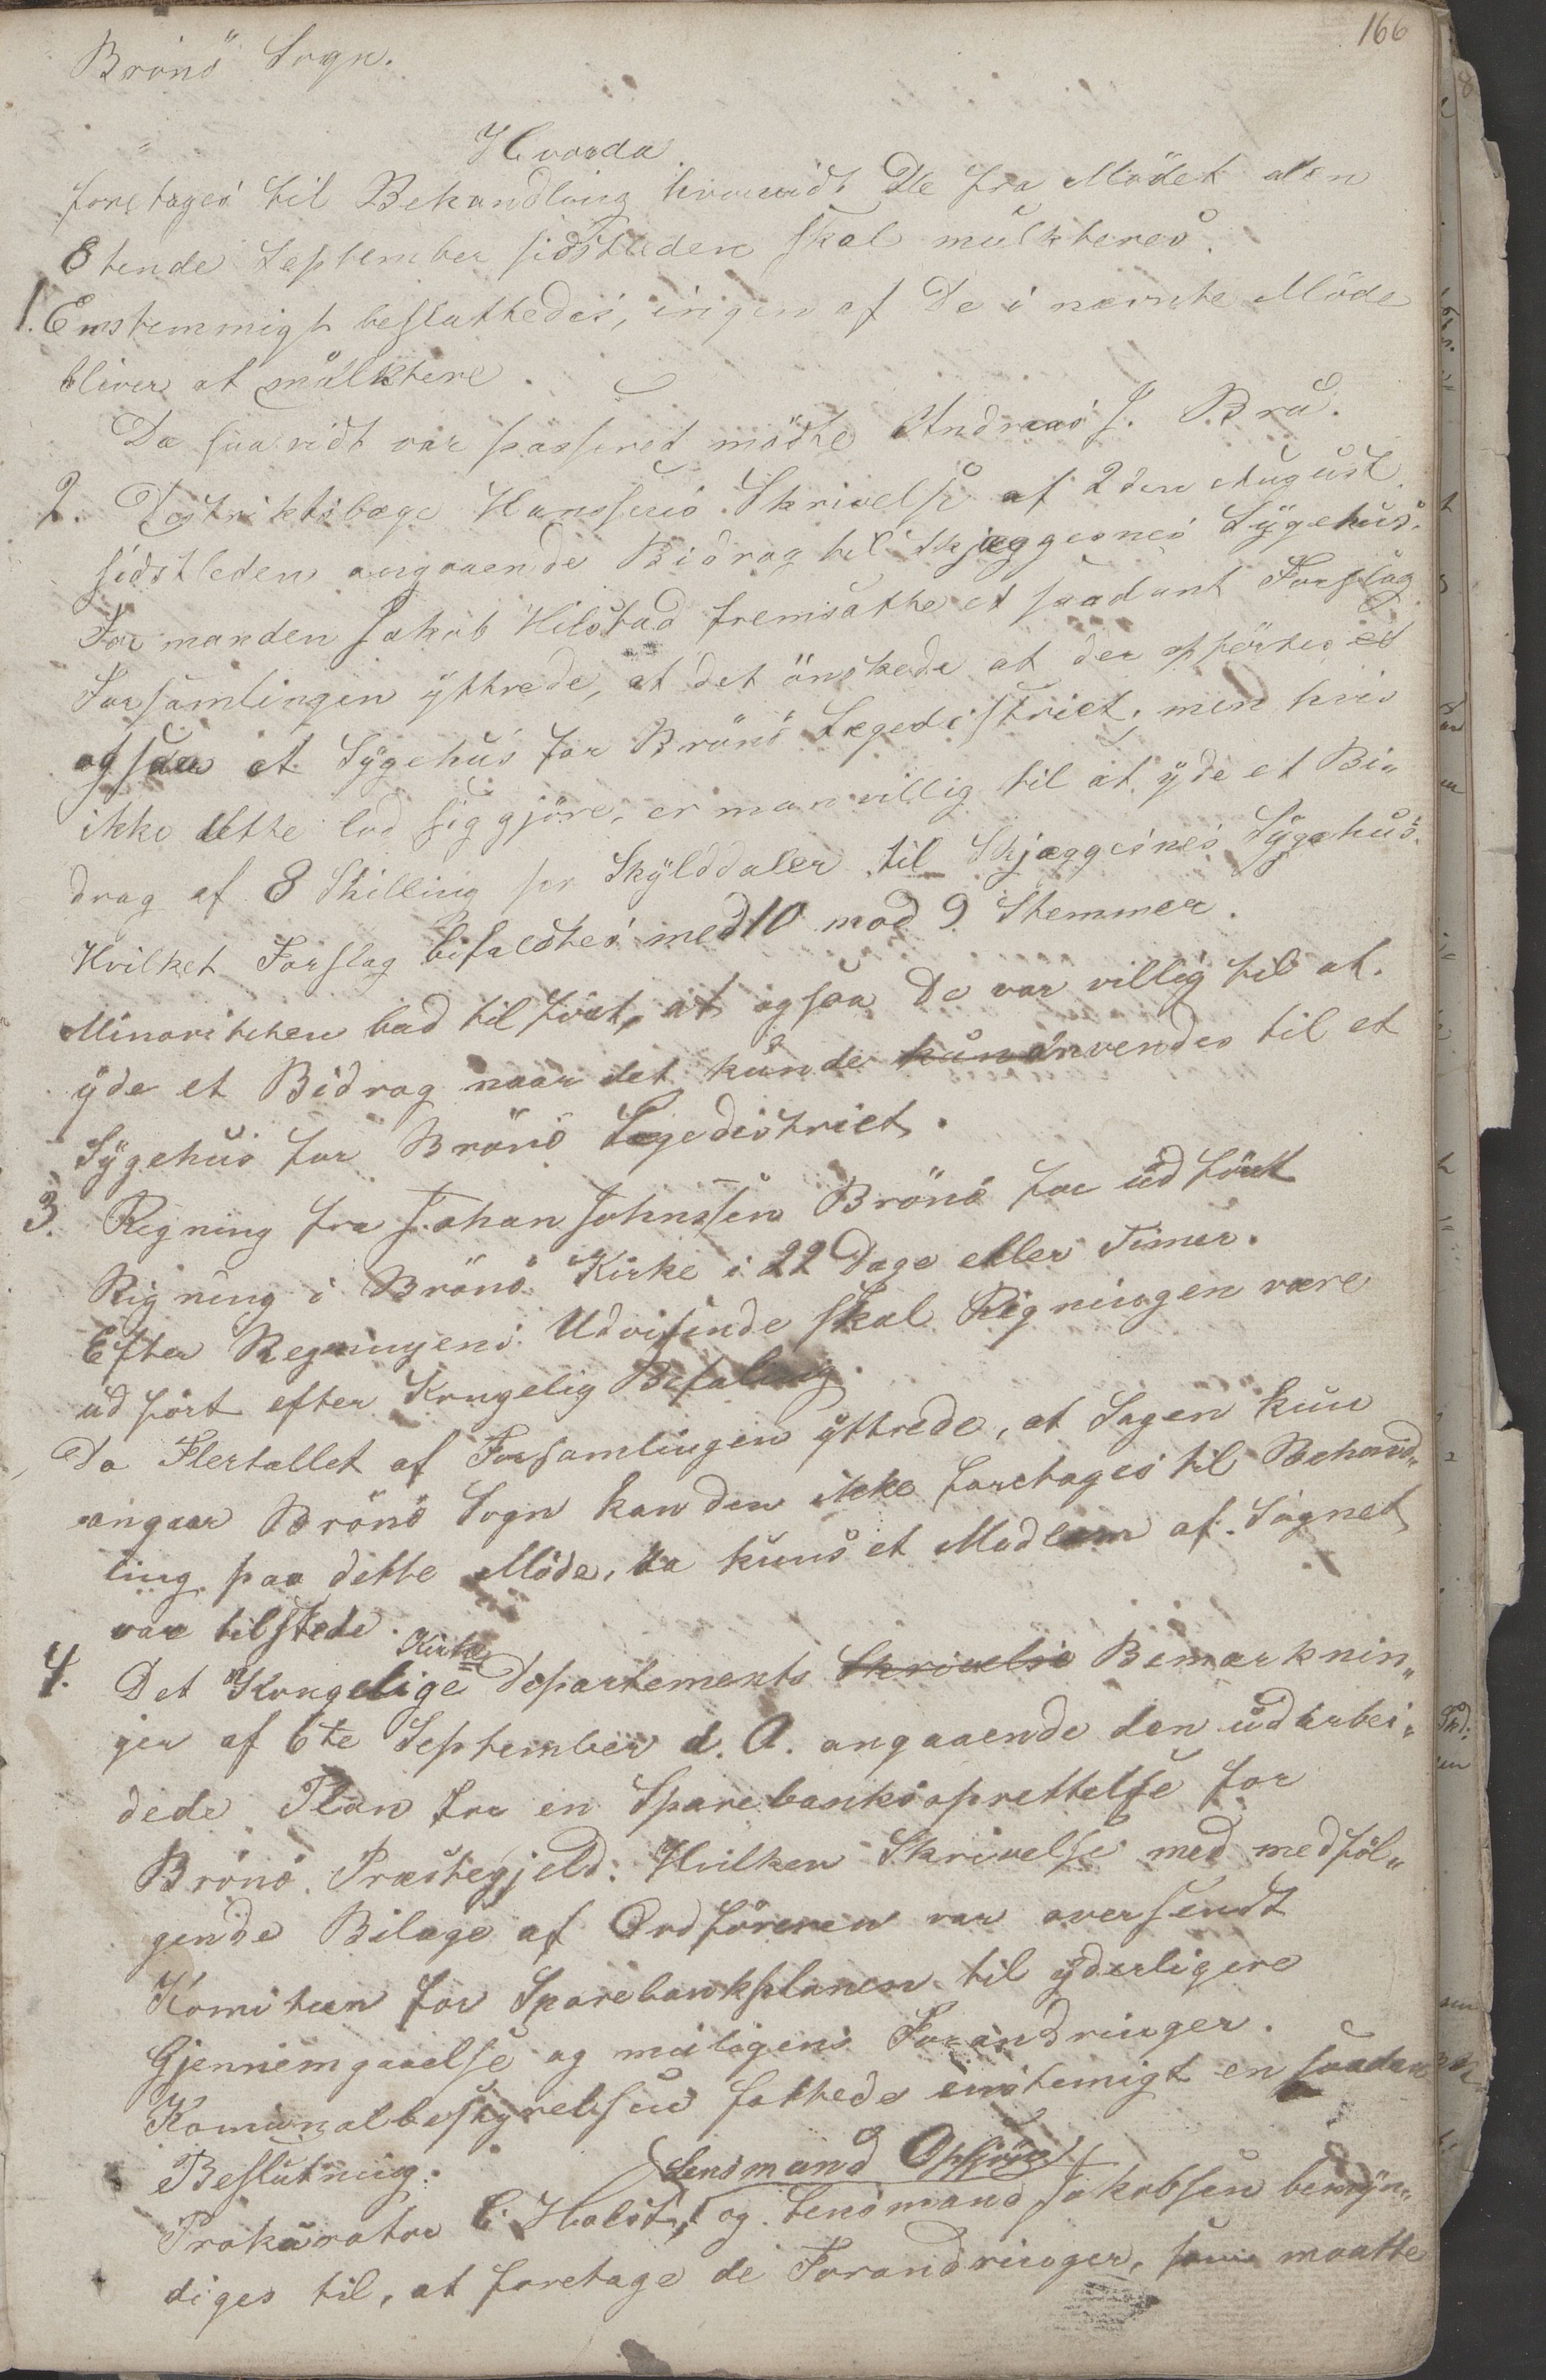 166
Brönö Sogn.
Hvorda
foretages til Behandling hvorvidt De fra Mödet den
8tende September sidstleden skal mulkteres.
1. Enstemmigt besluttedes, ingen af De i nævnte Möde
bliver at mulktere.
Da saavidt var passeret mödte Andreas J. Brü.
2. Destriktslæge Hanssens Skrivelse af 2den August
sidstleden angaaende Bidrag til Skjeggesnes Sygehus.
Formanden Jakob Hilstad fremsatte et saadant Forslag
Forsamlingen yttrede, at det önskede at der opförtes et
ogsaa et Sygehus for Brönö Lægedistrict, men hvis
ikke dette lod sig gjöre, er man villig til at yde et Bi„
drag af 8 Skilling pr Skylddaler til Skjæggesnes Sygehus.
Hvilket Forslag bifaldtes med 10 mod 9 Stemmer.
Minoriteten bad tilfört, at ogsaa De var villig til at
yde et Bidrag naar det kunde kun anvendes til et
Sygehus for Brönö Lægedistrict.
3. Regning fra Johan Johnssen Brönö for udfört
Rigning i Brönö Kirke i 22 Dage eller Timer.
Efter Regningens Udvisende skal Rigningen være
udfört efter Kongelig Befaling.
Da Flertallet af Forsamlingen yttrede, at Sagen kun
angaar Brönö Sogn kan den ikke foretages til Behand„
ling paa dette Möde, da kuns et Medlem af Sognet
var tilstede.
4. Det Kongelige Kirke Departements Skrivelse Bemærknin„
ger af 6te September d. A. angaaende den udarbei„
dede Plan for en Sparebanksoprettelse for
Brönö Præstegjeld. Hvilken Skrivelse med medföl„
gende Bilage af Ordföreren var oversendt
Komiteen for Sparebankplanen til yderligere
Gjennemgaaelse og muligens Forandringer.
Komunalbestyrelsen fattede enstemigt en saadan
Beslutning:
Lensmand
Prokurator C. Holst, og Lensmand Jakobsen bemyn„
diges til, at foretage de Forandringer, som maatte